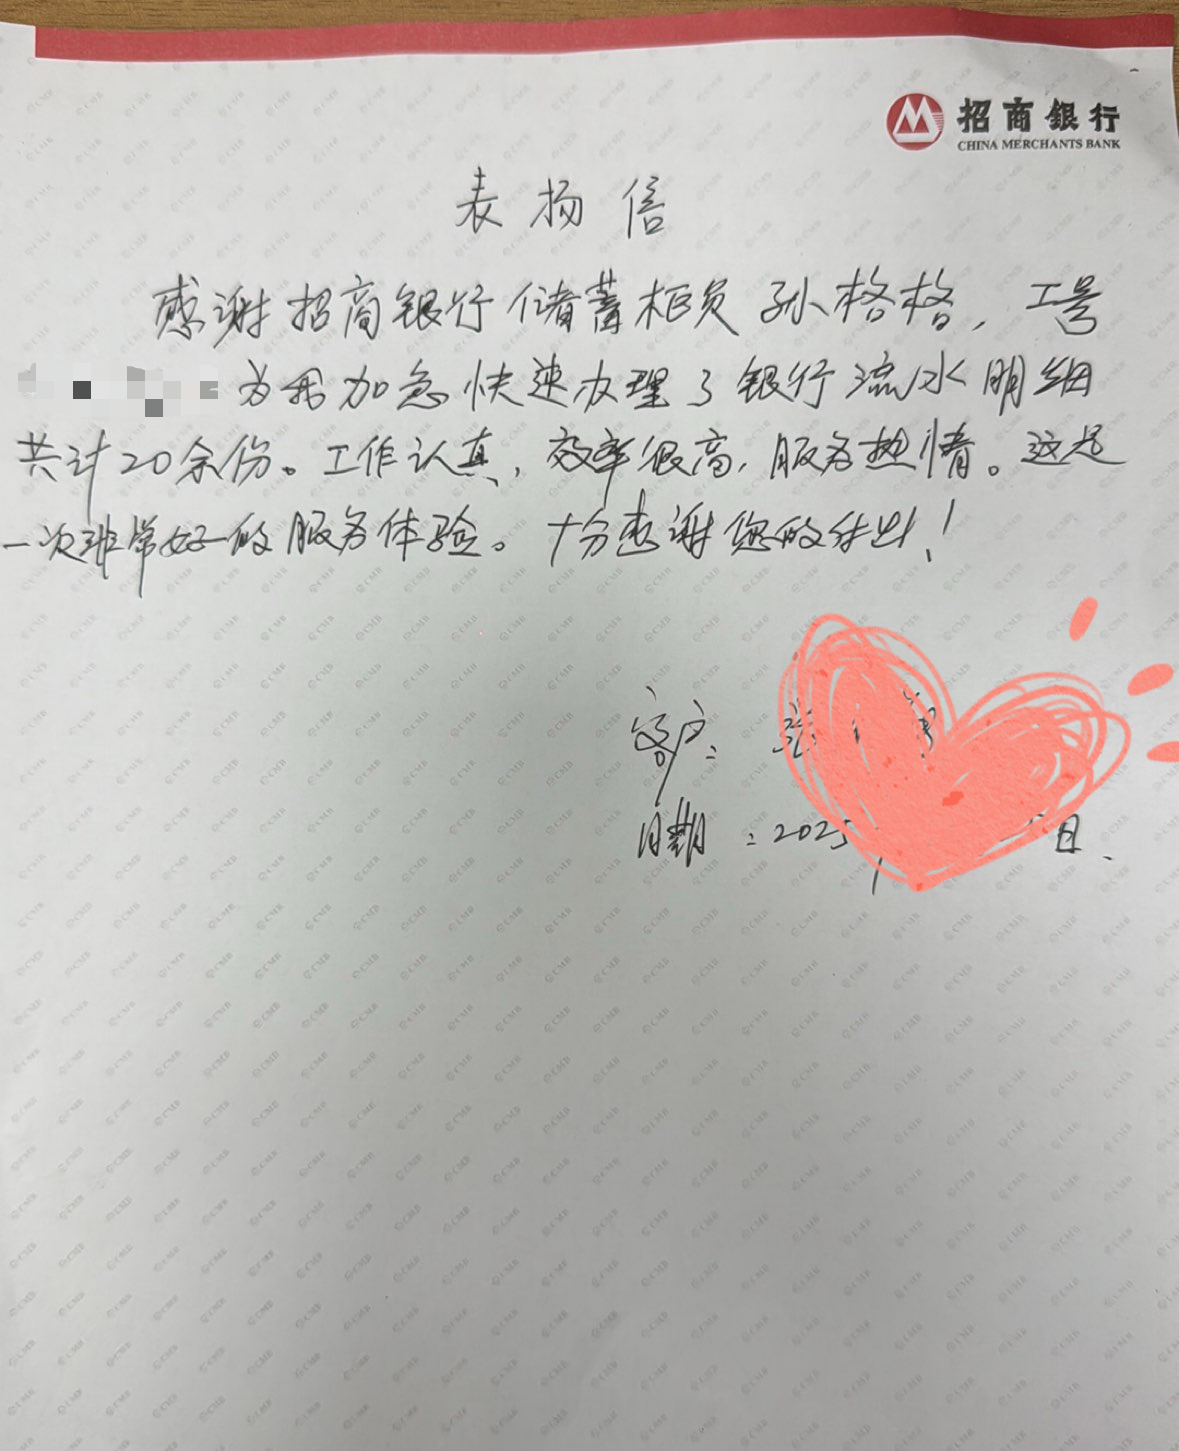 招商银行
CHINA MERCHANTS BANK
表扬信
感谢招商银行储蓄柜员孙格格，工号
为我加急快速办理了银行流水明细
共计20余份。工作认真，效率很高，服务热情。这是
一次非常好的服务体验。十分感谢您的付出！
客户：
日期：2025 日